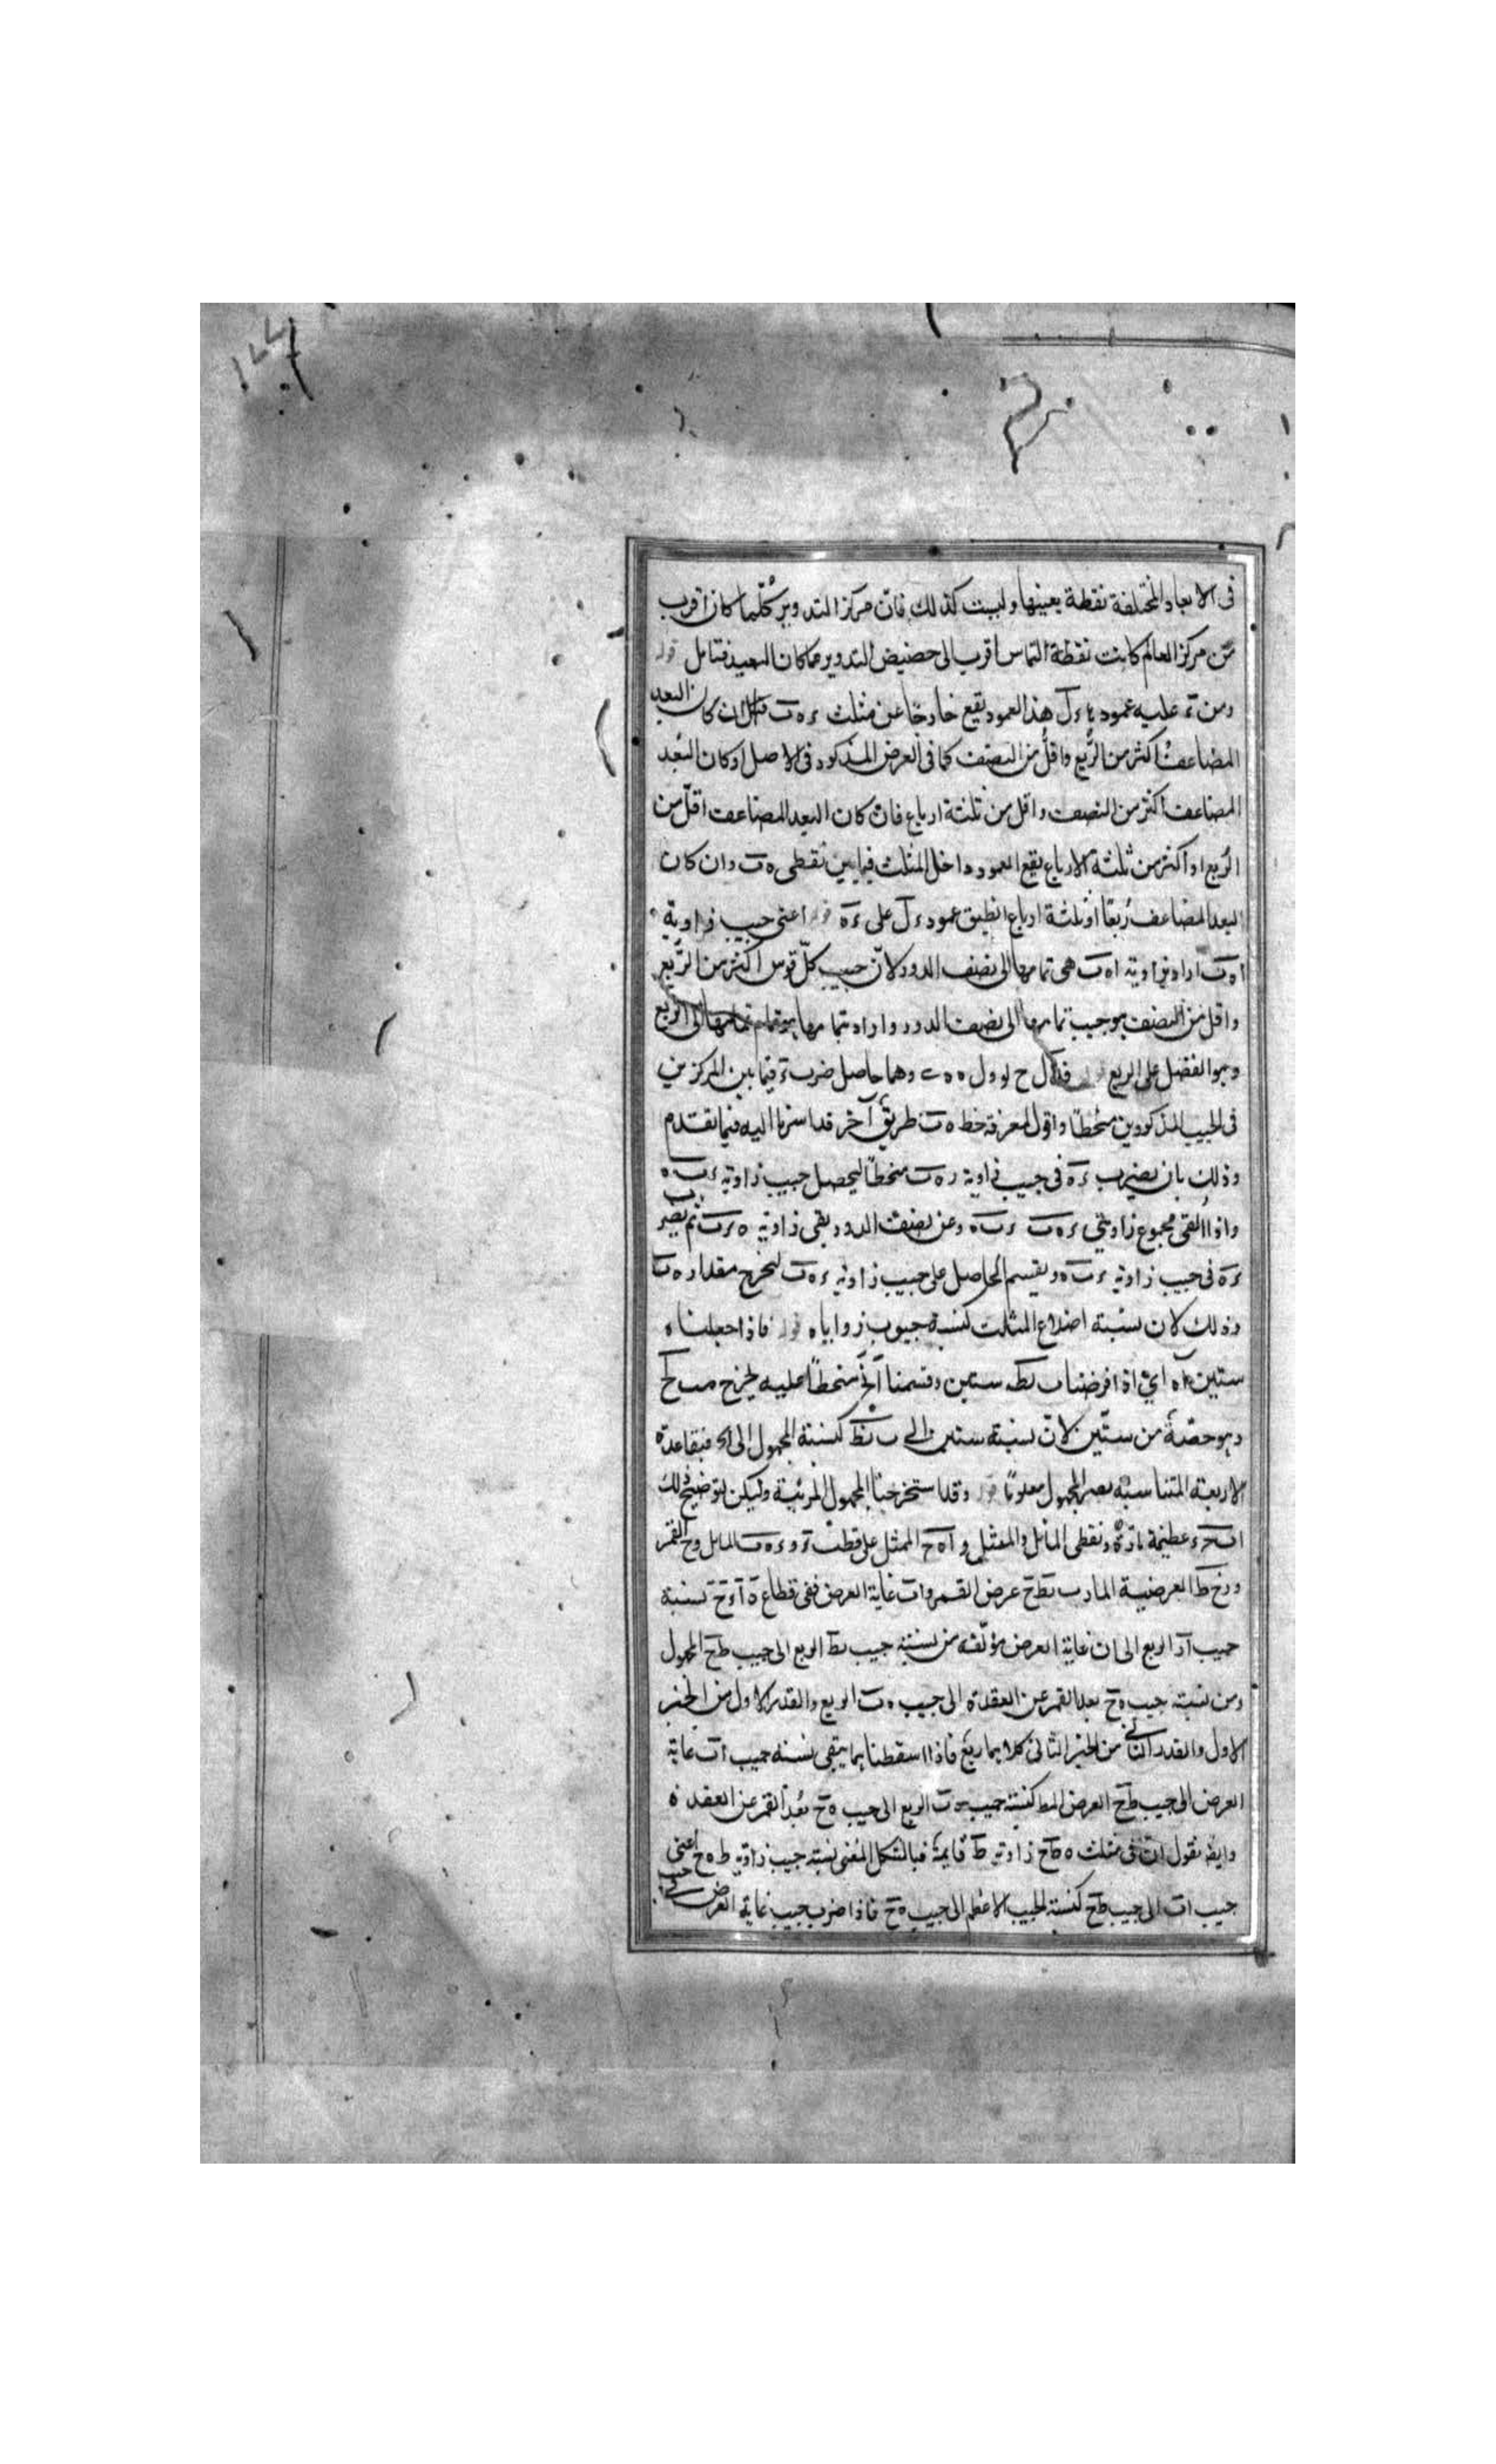 ١٤٤
فى الابعاد المختلفة نقطة بعينها وليست كذلك فان مركز التدوير كلما كان اقرب
من مركز العالم كانت نقطة التماس اقرب الى حضيض التدوير مما كان البعيد فتامل قوله
ومن ء عليه عمود ء ل هذا العمود يقع خارجا عن مثلث ء ه ب ان كان البعد
المضاعف اكثر من الربع واقل من النصف كما فى العرض المذكور فى الاصل او كان البعد
المضاعف اكثر من النصف واقل من ثلثة ارباع فان كان البعد المضاعف اقل من
الربع او اكثر من ثلثة الارباع يقع العمود داخل المثلث فيما بين نقطى ه ب وان كان
البعد المضاعف ربعا او ثلثة ارباع انطبق عمود ء ل على ء ه قوله اعنى جيب زاوية
ا ه ب اراد بزاوية ا ه ب هى تمامها الى نصف الدور لان جيب كل قوس اكثر من الربع
واقل من النصف هو جيب تمامها الى نصف الدور واراد بتمامها الى الربع
وهو الفضل على الربع قوله ل ح وهما حاصل ضرب فيما بين المركزين
فى الجيب المذكورين منحطا واقول لمعرفة خط ه ب طريق آخر قد اشرنا اليه فيما تقدم
وذلك بان يضرب ء ه فى جيب زاوية ء ه ب منحطا ليحصل جيب زاوية ء ب ه
واذا القى مجموع زاويتى ء ه ب ء ب ه من نصف الدور يبقى زاوية ه ء ب ثم يضرب
ء ه فى جيب زاوية ء ب ه ويقسم الحاصل على جيب زاوية ء ه ب ليخرج مقدار ه ب
وذلك لان نسبة اضلاع المثلث كنسبة جيوب زواياه قوله فاذا جعلنا ه
ستين اى اذا فرضنا ب ط ستين وقسمنا منحطا عليه يخرج
وهو حصة من ستين لان نسبة ستين الى ب ط كنسبة المجهول الى فبقاعدة
الاربعة المتناسبة يصير المجهول معلوما قوله وقد استخرجنا المجهول المرتبة وليكن لتوضيح ذلك
عظيمة مارة ونقطى المائل والممثل و ا ه ح الممثل على قطب ء و ء ه ب المائل و ح القمر
و ح ط العرضية المار ب ط ح عرض القمر و ا ب غاية العرض ففى قطاع نسبة
جيب ا ء الربع الى ا ب غاية العرض مؤلفة من نسبة جيب ط الربع الى جيب ط ح المجهول
ومن نسبة جيب ه ح بعد القمر عن العقدة الى جيب ه ب الربع والقدر الاول من الحيز
الاول والقدر الثانى من الحيز الثانى كلاهما ربع فاذا اسقطناهما يبقى نسبة جيب ا ب غاية
العرض الى جيب ط ح العرض المط كنسبة جيب ه ب الربع الى جيب ه ح بعد القمر عن العقدة
وايضا نقول ان فى مثلث ه ط ح زاوية ط قايمة فبالشكل المغنى نسبة جيب زاوية ط ه ح اعنى
جيب ا ب الى جيب ط ح كنسبة الجيب الاعظم الى جيب ه ح فاذا ضرب جيب غاية العرض فى جيب